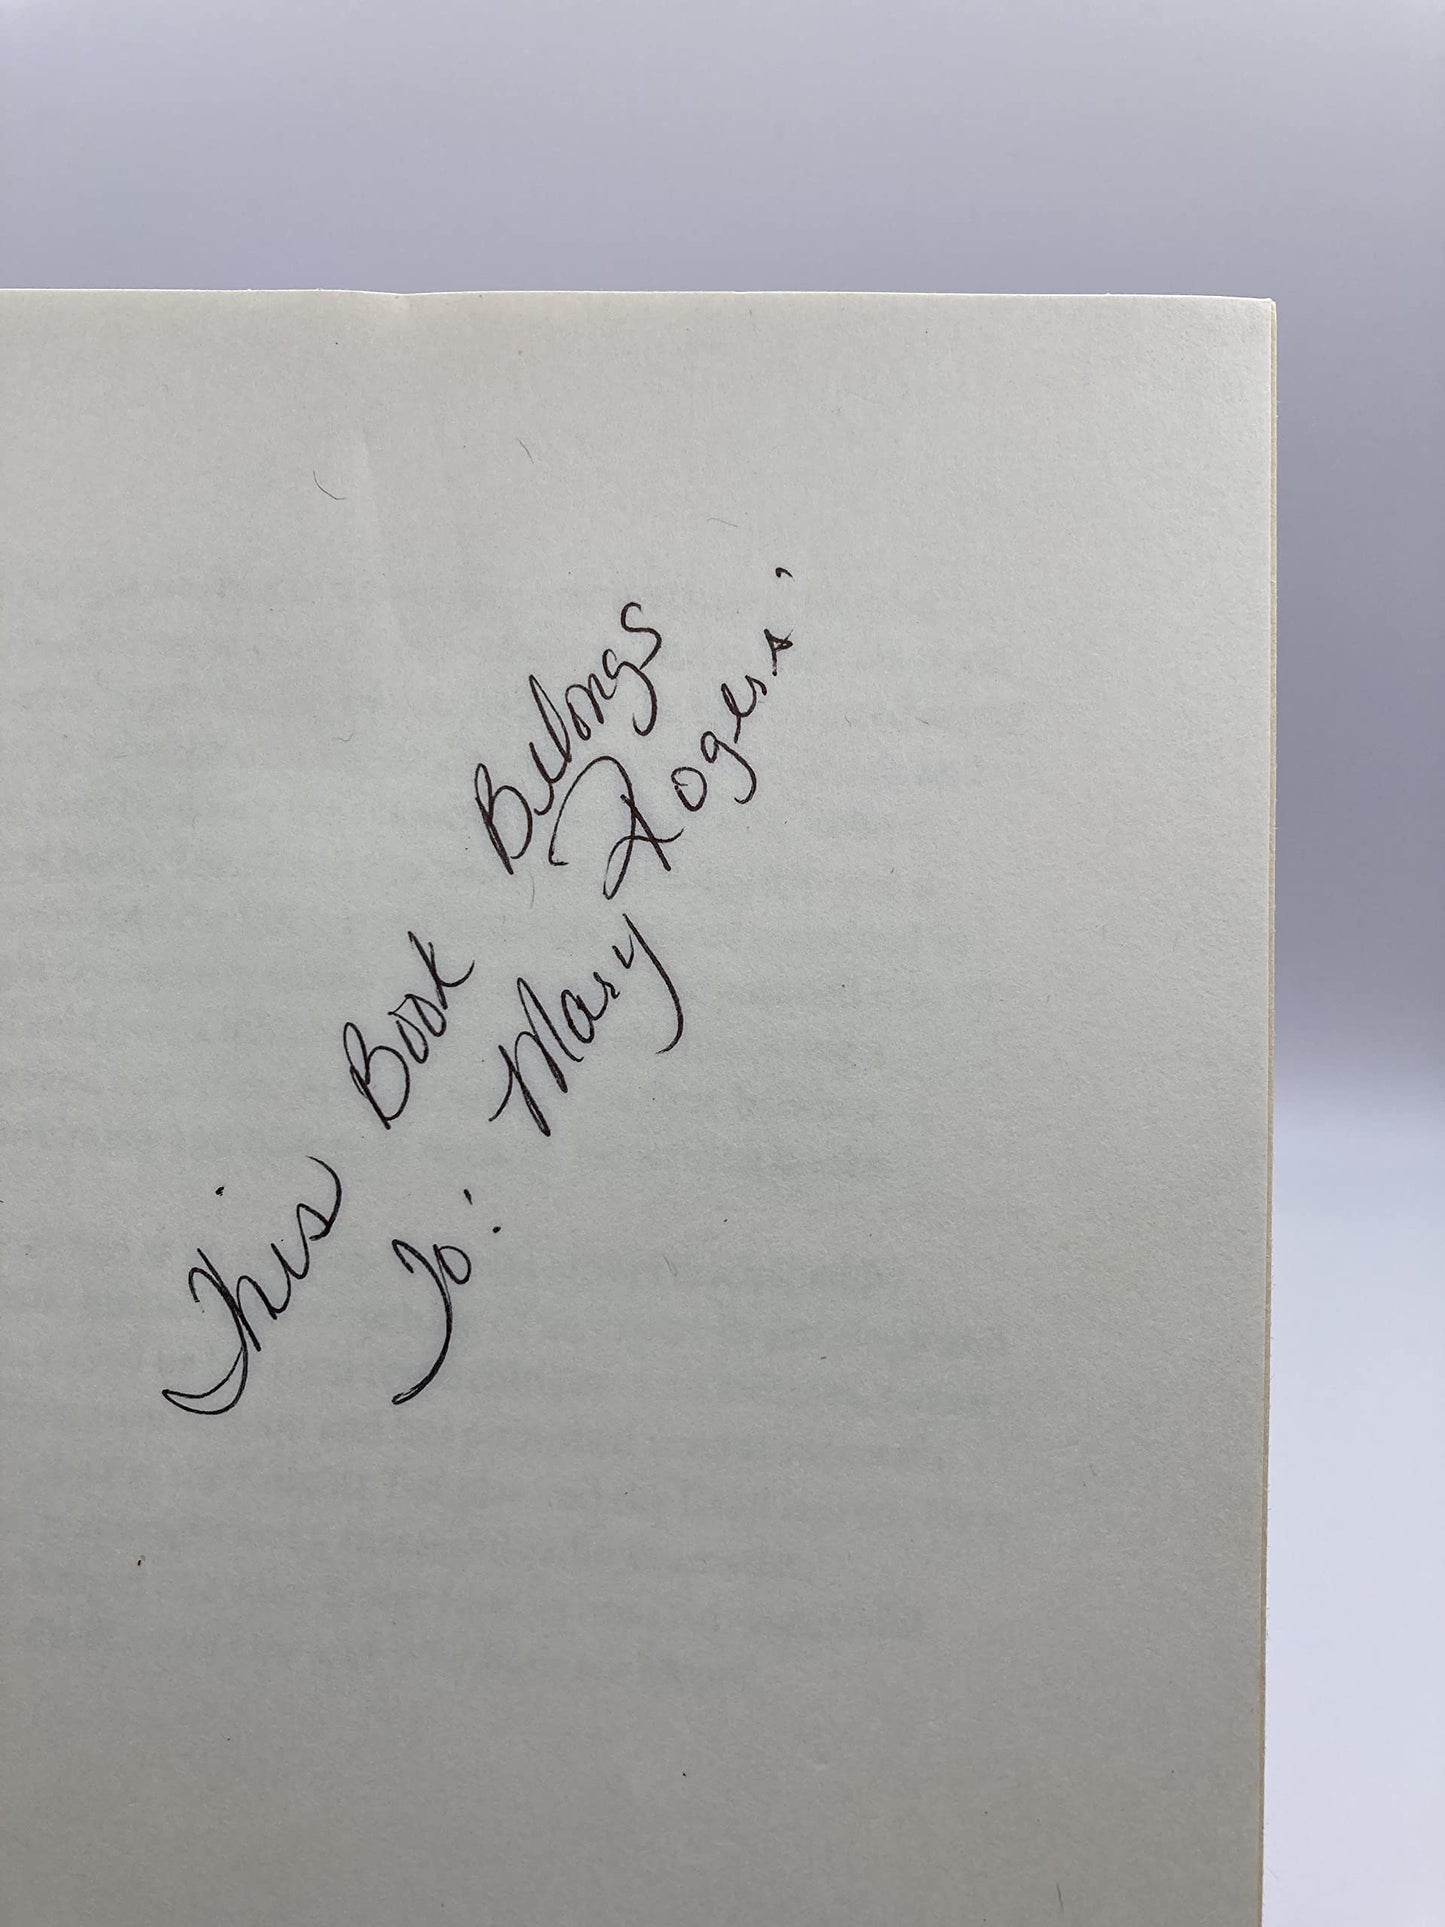 This Book Belongs
To: Mary Rogers'